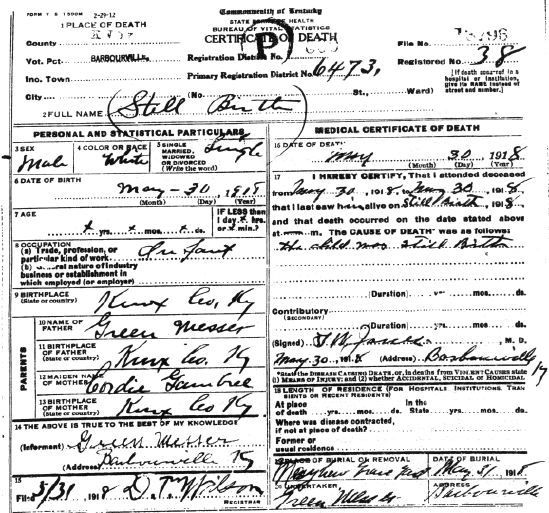 FORM V S 1500M 2-29-12
Commonwealth of Kentucky
1 PLACE OF DEATH
STATE BOARD OF HEALTH
BUREAU OF VITAL STATISTICS
County Knox
CERTIFICATE OF DEATH
File No.
(P)
Vot. Pct. BARBOURVILLE
Registration District No.
Registered No. 38
Inc. Town
Primary Registration District No. 6473
[If death occurred in a hospital or institution, give its NAME instead of street and number.]
City (No St., Ward)
2 FULL NAME (Still Birth)
PERSONAL AND STATISTICAL PARTICULARS
3 SEX Male
4 COLOR OR RACE White
5 SINGLE, MARRIED, WIDOWED OR DIVORCED (Write the word) Single
6 DATE OF BIRTH May - 30, 1918
(Month) (Day) (Year)
7 AGE x yrs. x mos. x ds.
IF LESS than 1 day x hrs. or x min.?
8 OCCUPATION
(a) Trade, profession, or particular kind of work Infant
(b) General nature of industry
business or establishment in
which employed (or employer)
9 BIRTHPLACE (State or country) Knox Co, Ky
PARENTS
10 NAME OF FATHER Green Messer
11 BIRTHPLACE OF FATHER (State or country) Knox Co. Ky
12 MAIDEN NAME OF MOTHER Cordie Gambrel
13 BIRTHPLACE OF MOTHER (State or country) Knox Co Ky
14 THE ABOVE IS TRUE TO THE BEST OF MY KNOWLEDGE
(Informant) Green Messer
(Address) Barbourville Ky
15 Filed 5/31 1918 D. T. Wilson
REGISTRAR
MEDICAL CERTIFICATE OF DEATH
16 DATE OF DEATH May 30 1918
(Month) (Day) (Year)
17 I HEREBY CERTIFY, That I attended deceased
from May 30, 1918, to May 30, 1918,
that I last saw h alive on Still Birth, 1918,
and that death occurred on the date stated above
at m. The CAUSE OF DEATH* was as follows:
the child was Still Birth
(Duration) yrs. mos. ds.
Contributory
(SECONDARY)
(Duration) yrs. mos. ds.
(Signed) M. D.
May 30, 1918 (Address) Barbourville Ky
*State the DISEASE CAUSING DEATH, or, in deaths from VIOLENT CAUSES state
(1) MEANS OF INJURY; and (2) whether ACCIDENTAL, SUICIDAL or HOMICIDAL
18 LENGTH OF RESIDENCE (FOR HOSPITALS, INSTITUTIONS, TRANSIENTS OR RECENT RESIDENTS)
At place of death yrs. mos. ds. In the State yrs. mos. ds.
Where was disease contracted,
if not at place of death?
Former or
usual residence
19 PLACE OF BURIAL OR REMOVAL
DATE OF BURIAL May 31, 1918
20 UNDERTAKER Green Messer
ADDRESS Barbourville